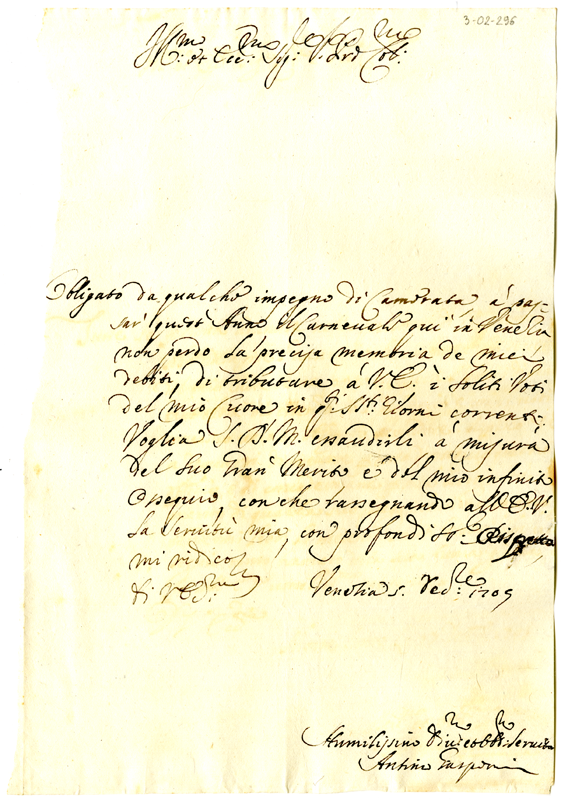 3-02-296
Ill:mo et Ecc:mo Sig:
Obligato da qualche impegno di Camerata, à pas=
sar quest Anno il Carneuale quì in Venetia
non perdo la precisa memoria de miei
debiti, di tributare à V.E. i soliti Voti
del mio Cuore in q.i S.ti Giorni correnti.
Voglia S. D. M. essaudirli à misura
del suo Gran Merito e del mio infinito
Ossequio, con che rassegnando all E.V.
la seruitù mia, con profondiss.o Rispetto
mi ridico
Di V. Ecc:
Venetia 5. 1705
Humilissimo seruitor
Antino